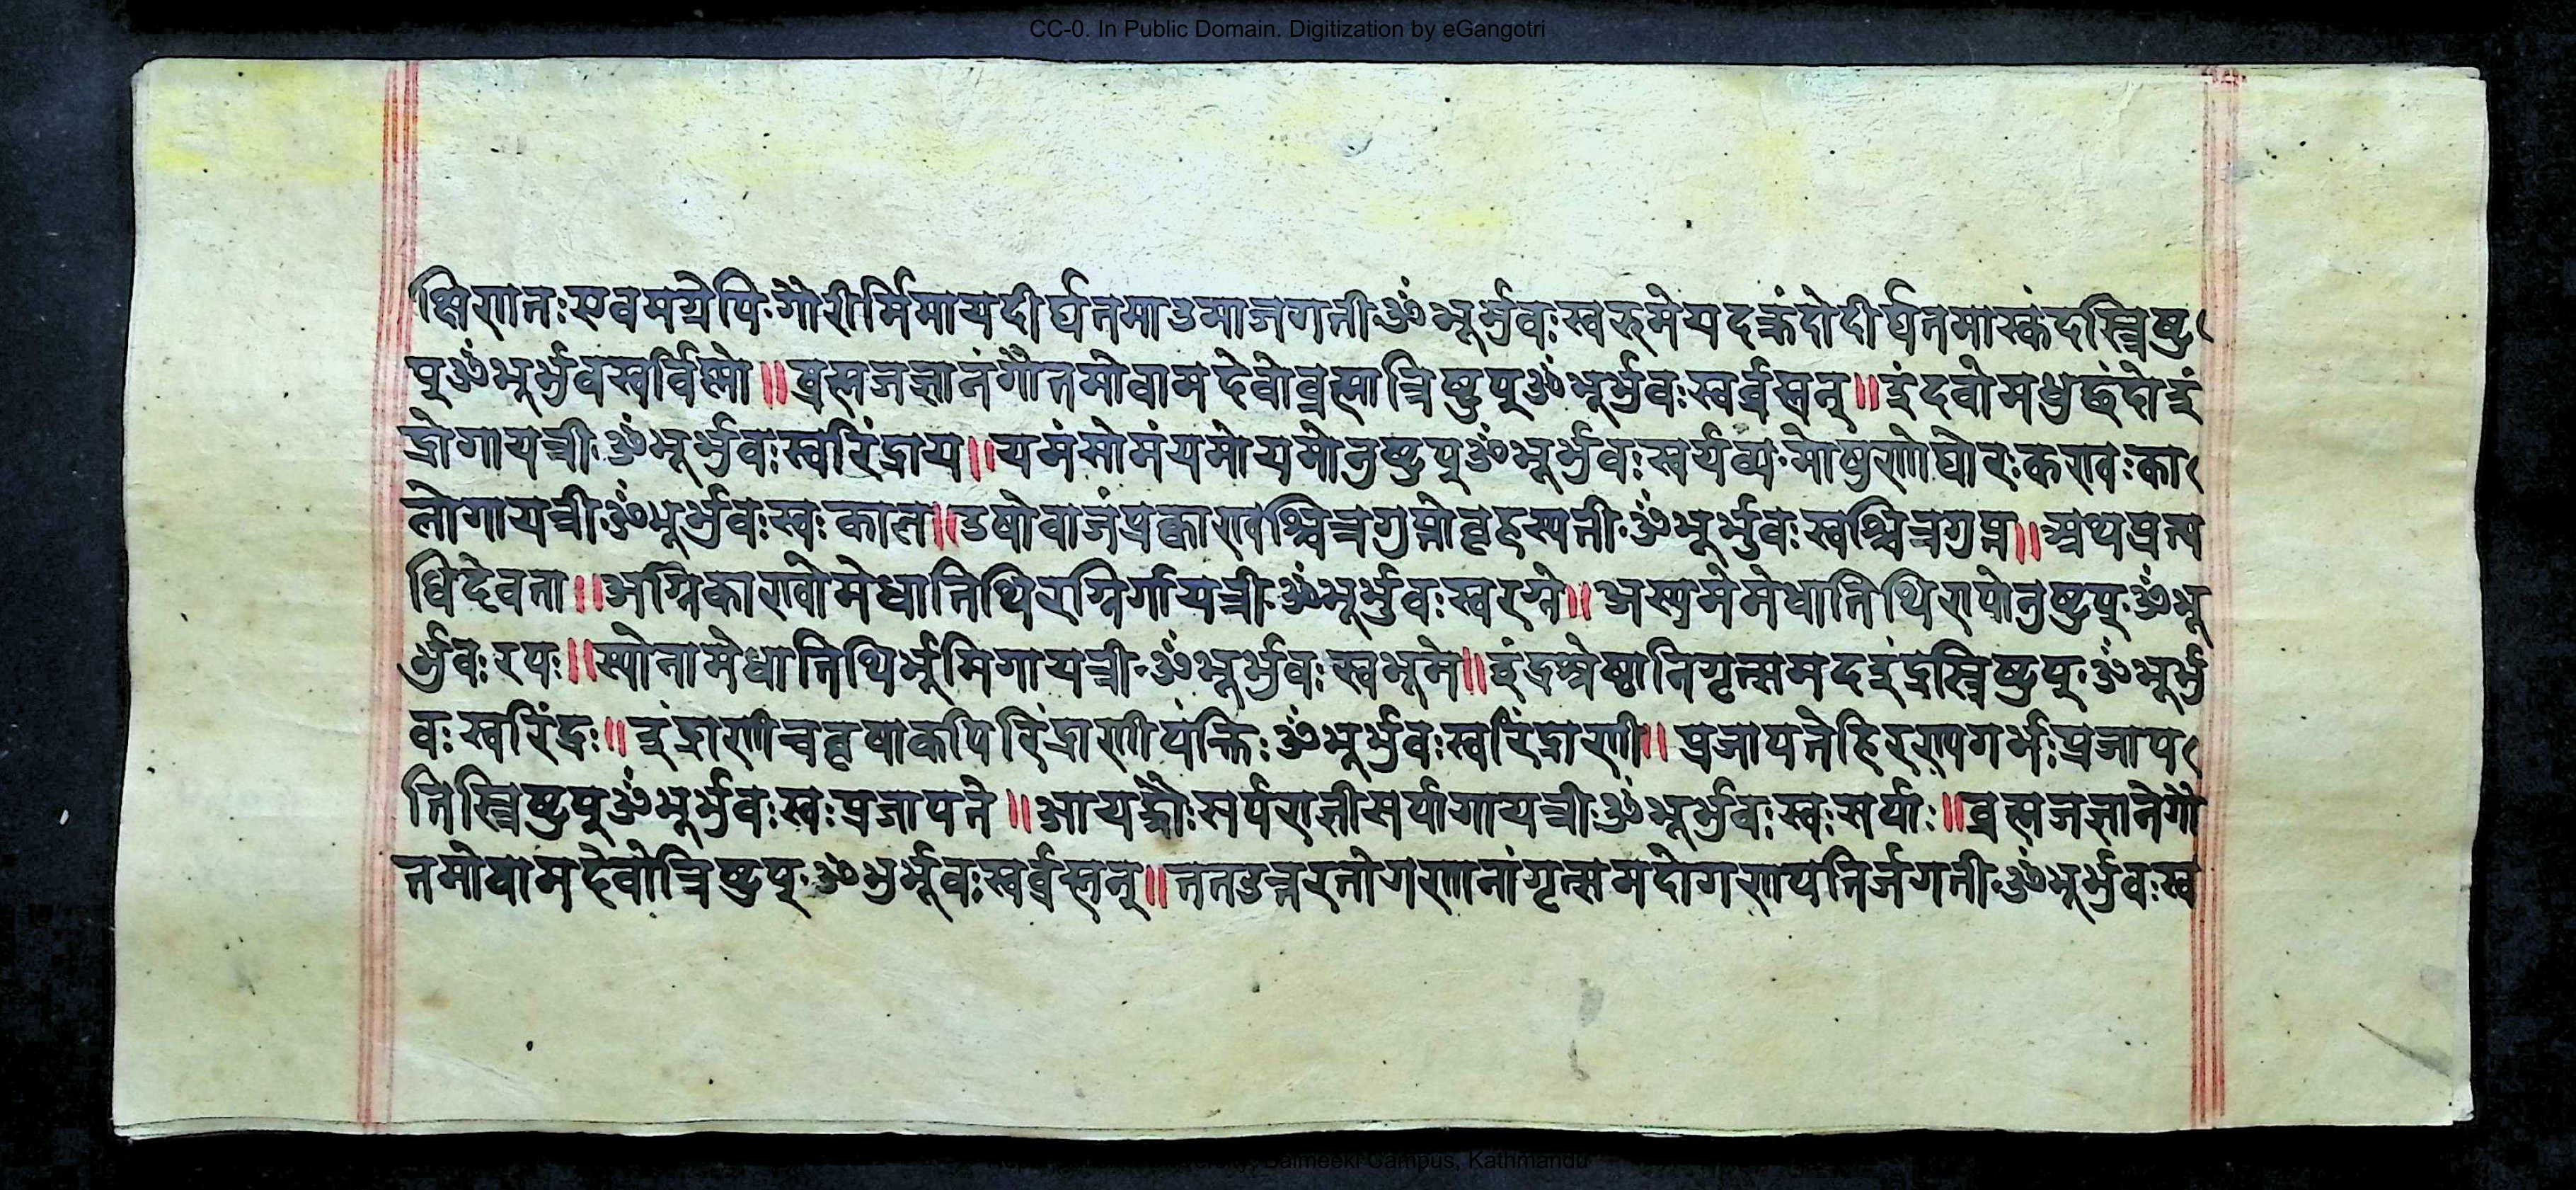 CC-0. In Public Domain. Digitization by eGangotri
क्षिणानः एवमग्रेपि गौरीर्मिमायदीर्घतमाउमाजगती ॐ भूर्भुवः स्वरुमेयदक्रंदोदीर्घतमास्कंदस्त्रिष्टु
पू ॐ भूर्भुवस्वर्विस्मो ॥ ब्रह्मजज्ञानंगौतमोवामदेवोब्रह्मात्रिष्टुपू ॐ भूर्भुवः स्वर्ब्रह्मन् ॥ इंदवोमधुछंदोइं
द्रोगायत्री ॐ भूर्भुवः स्वरिंद्राय ॥ यमंसोमंयमोयमोनुष्टुपू ॐ भूर्भुवः स्वर्यव्य मोषुणोघोरः कण्वः का
लोगायत्री ॐ भूर्भुवः स्वः काल ॥ उषोवाजंप्रक्काण्वश्चित्रगुप्तोबृहस्पती ॐ भूर्भुवः स्वश्चित्रगुप्त ॥ अथप्रत्य
धिदेवता ॥ अग्निकाण्वोमेधातिथिरग्निर्गायत्री ॐ भूर्भुवः स्वरग्ने ॥ अस्पुमेमेधातिथिरापोनुष्टुपू ॐ भू
र्भुवः रपः ॥ स्योनामेधातिथिर्भूमिगायत्री ॐ भूर्भुवः स्वभूमे ॥ इंद्रश्रेष्ठानिगृत्समदइंद्रस्त्रिष्टुपू ॐ भूर्भु
वः स्वरिंद्रः ॥ इंद्राणीचवृषाकपिरिंद्राणीपंक्तिः ॐ भूर्भुवः स्वरिंद्राणी ॥ प्रजापतेहिरण्यगर्भः प्रजाप
तिस्त्रिष्टुपू ॐ भूर्भुवः स्वः प्रजापते ॥ आयङ्गौः सर्पराज्ञीसर्पागायत्री ॐ भूर्भुवः स्वः सर्पाः ॥ ब्रह्मजज्ञानेगौ
तमोवामदेवोत्रिष्टुपू ॐ भुर्भूवः स्वर्ब्रह्मन् ॥ ततउत्तरतोगणानांगृत्समदोगणपतिर्जगती ॐ भूर्भुवः स्व
Campus, Kathmandu